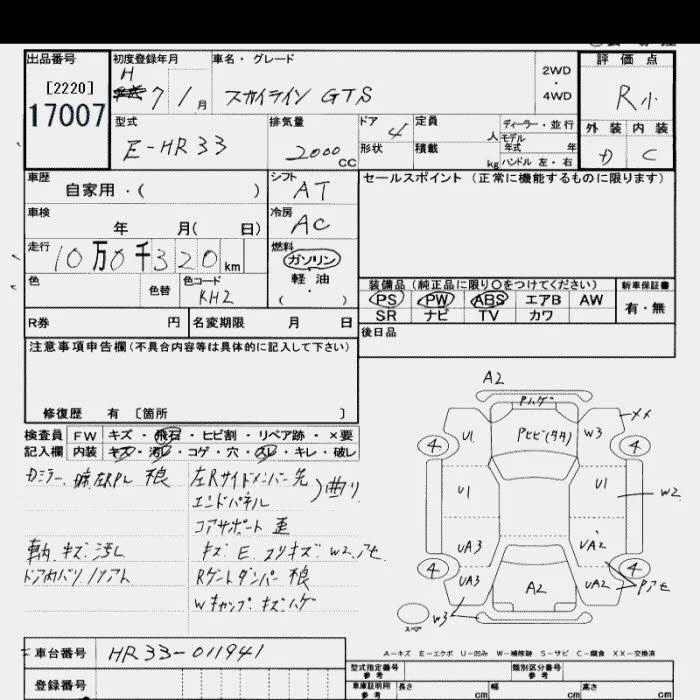 出品番号
[2220]
17007
初度登録年月
H
7 1 月
車名・グレード
スカイライン GTS
2WD
・
4WD
評価点
R小
外装 内装
D C
型式
E-HR33
排気量
2000 CC
ドア
4
形状
定員
人
積載
kg
ディーラー・並行
モデル
年式 年
ハンドル 左・右
車歴
自家用・( )
シフト
AT
セールスポイント (正常に機能するものに限ります)
車検
年 月( 日)
冷房
AC
走行
10万0千320 km
燃料
ガソリン
軽油
( )
色
色替
色コード
KH2
装備品 (純正品に限り○をつけてください)
PS PW ABS エアB AW
SR ナビ TV カワ
新車保証書
有・無
R券 円
名変期限 月 日
後日品
注意事項申告欄 (不具合内容等は具体的に記入して下さい)
修復歴 有 [箇所 ]
検査員
記入欄
FW キズ・飛石・ヒビ割・リペア跡・×要
内装 キズ・汚レ・コゲ・穴・スレ・キレ・破レ
左Rサイドメンバー先
エンドパネル
曲り
コアサポート 歪
車内 キズ 汚レ
キズ E スリキズ W2
ドア内バリ
Rゲートダンパー
Wキャップ キズハゲ
A2
Pハゲ
U1
Pヒビ(タタ)
W3
XX
4
4
U1
U1
W2
UA3
UA2
4
4
UA3
A2
UA2
Pアセ
W3
スペア
A-キズ E-エクボ U-凹み W-補修跡 S-サビ C-腐食 XX-交換済
車台番号
HR33-011941
登録番号
型式指定番号
参考
類別区分番号
参考
車庫証明用
参考
長さ cm
幅 cm
高さ cm